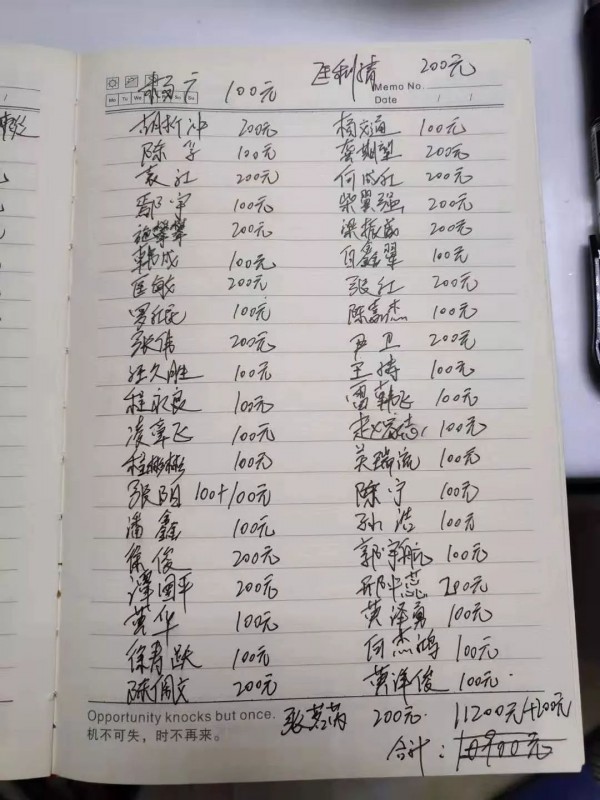 100元 200元
Memo No.
Mo Tu We Th Fr Sa Su Date / /
胡新冲 200元 杨交通 100元
陈子 100元 龚期望 200元
袁红 200元 何成红 200元
鄢宇 100元 柴翼强 200元
施攀攀 200元 梁振威 200元
韩成 100元 白鑫翠 100元
匡敏 200元 张红 200元
罗红民 100元 陈嘉杰 100元
张伟 200元 尹卫 200元
汪久胜 100元 王涛 100元
程永良 100元 雷韩飞 100元
凌章飞 100元 赵宏志 100元
程彬彬 100元 吴瑞流 100元
张阳 100+100元 陈宁 100元
潘鑫 100元 孙浩 100元
徐俊 200元 郭宇航 100元
谭国平 200元 邢中蕊 200元
黄华 100元 黄泽勇 100元
徐青跃 100元 何杰鸿 100元
陈闻文 200元 黄泽俊 100元
Opportunity knocks but once.
机不可失，时不再来。
张茗芮 200元 11200元+200元
合计：10900元